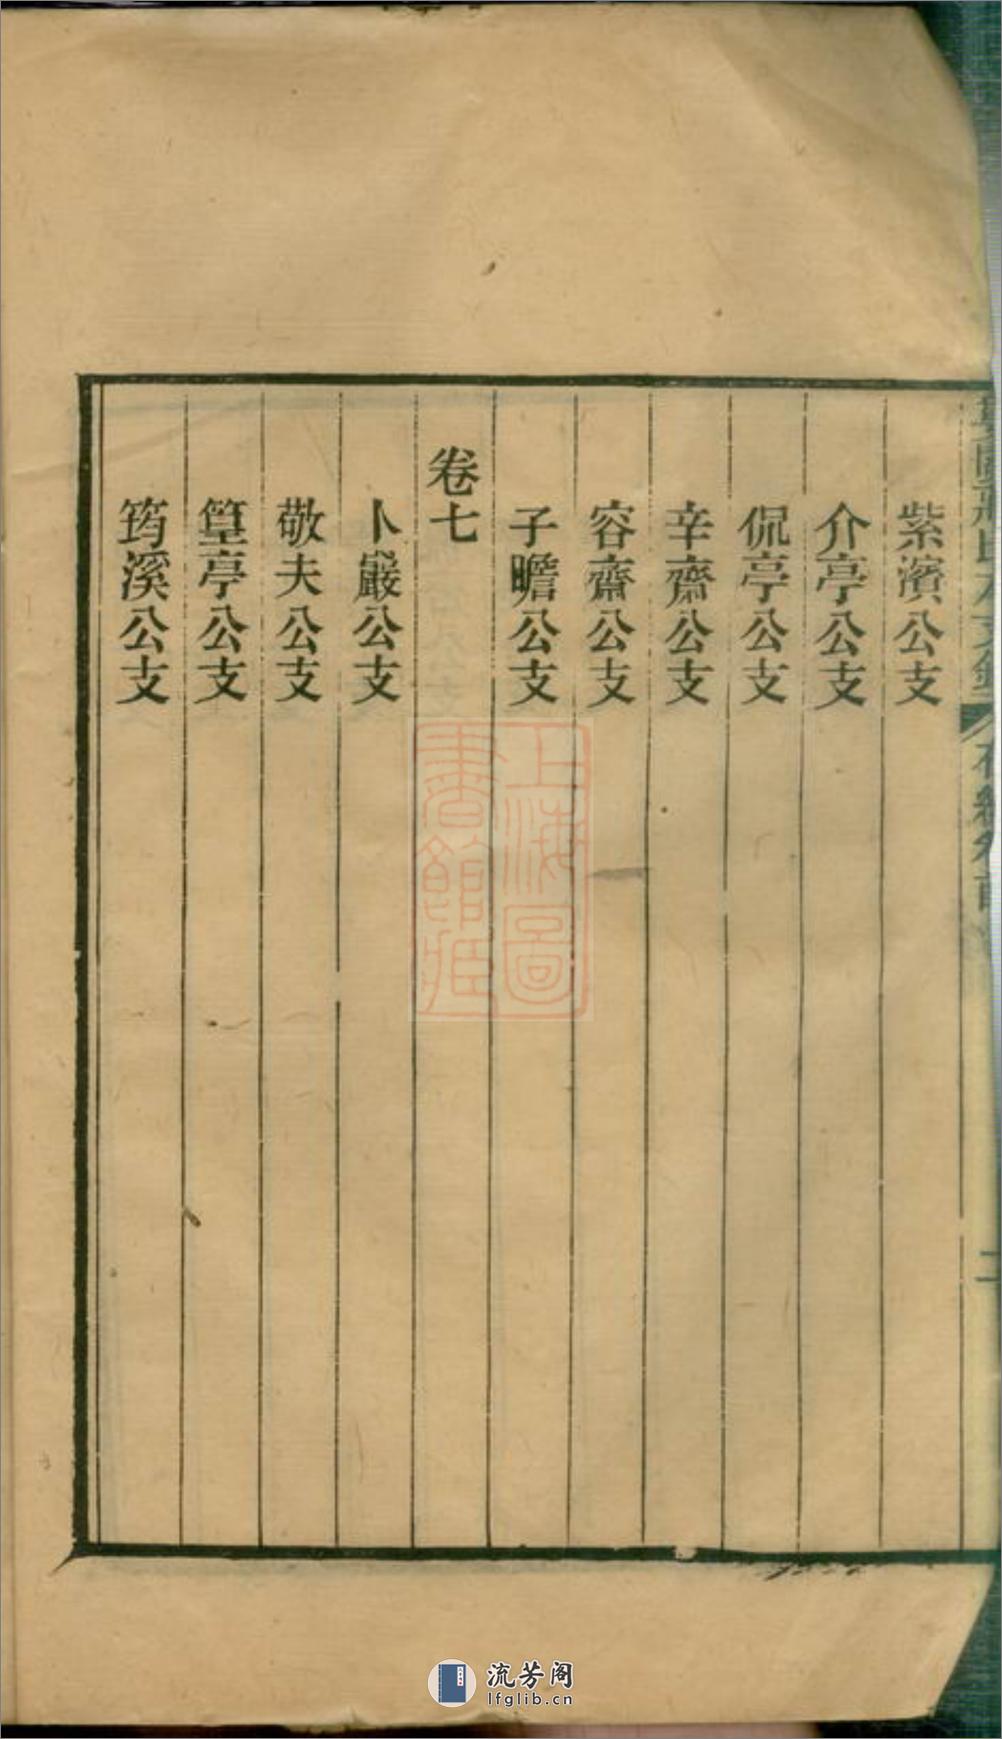 紫濱公支
介亭公支
侃亭公支
辛齋公支
容齋公支
子瞻公支
卷七
卜巖公支
敬夫公支
篁亭公支
筠溪公支
上海圖
書館藏
流芳阁
lfglib.cn